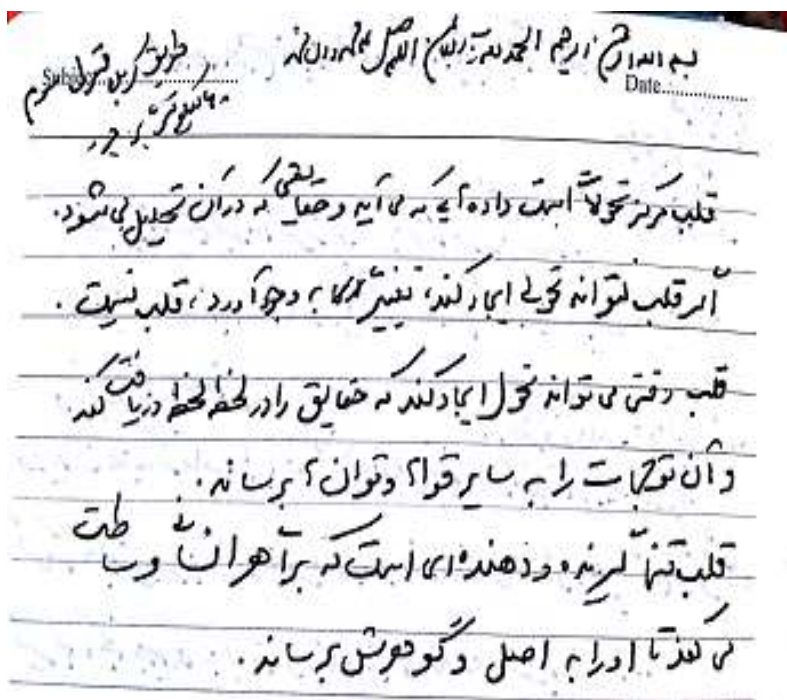 بسم الله الرحمن الرحیم الحمدلله رب العالمین اللهم صل علی محمد و آل محمد
Subject
Date
طریق کربلا
قلب مرکز تحولات است داده‌هایی که می‌آید و حقایقی که در آن تحلیل می‌شود.
اگر قلب نتواند تحولی ایجاد کند، تغییر به وجود آورد، قلب نیست.
قلب وقتی می‌تواند تحول ایجاد کند که حقایق را در لحظه لحظه دریافت کند.
و آن توجهات را به سایر قواها و توان‌ها برساند.
قلب تنها گیرنده و دهنده‌ای است که برای هر انسانی وساطت
می‌کند تا او را به اصل و گوهرش برساند.